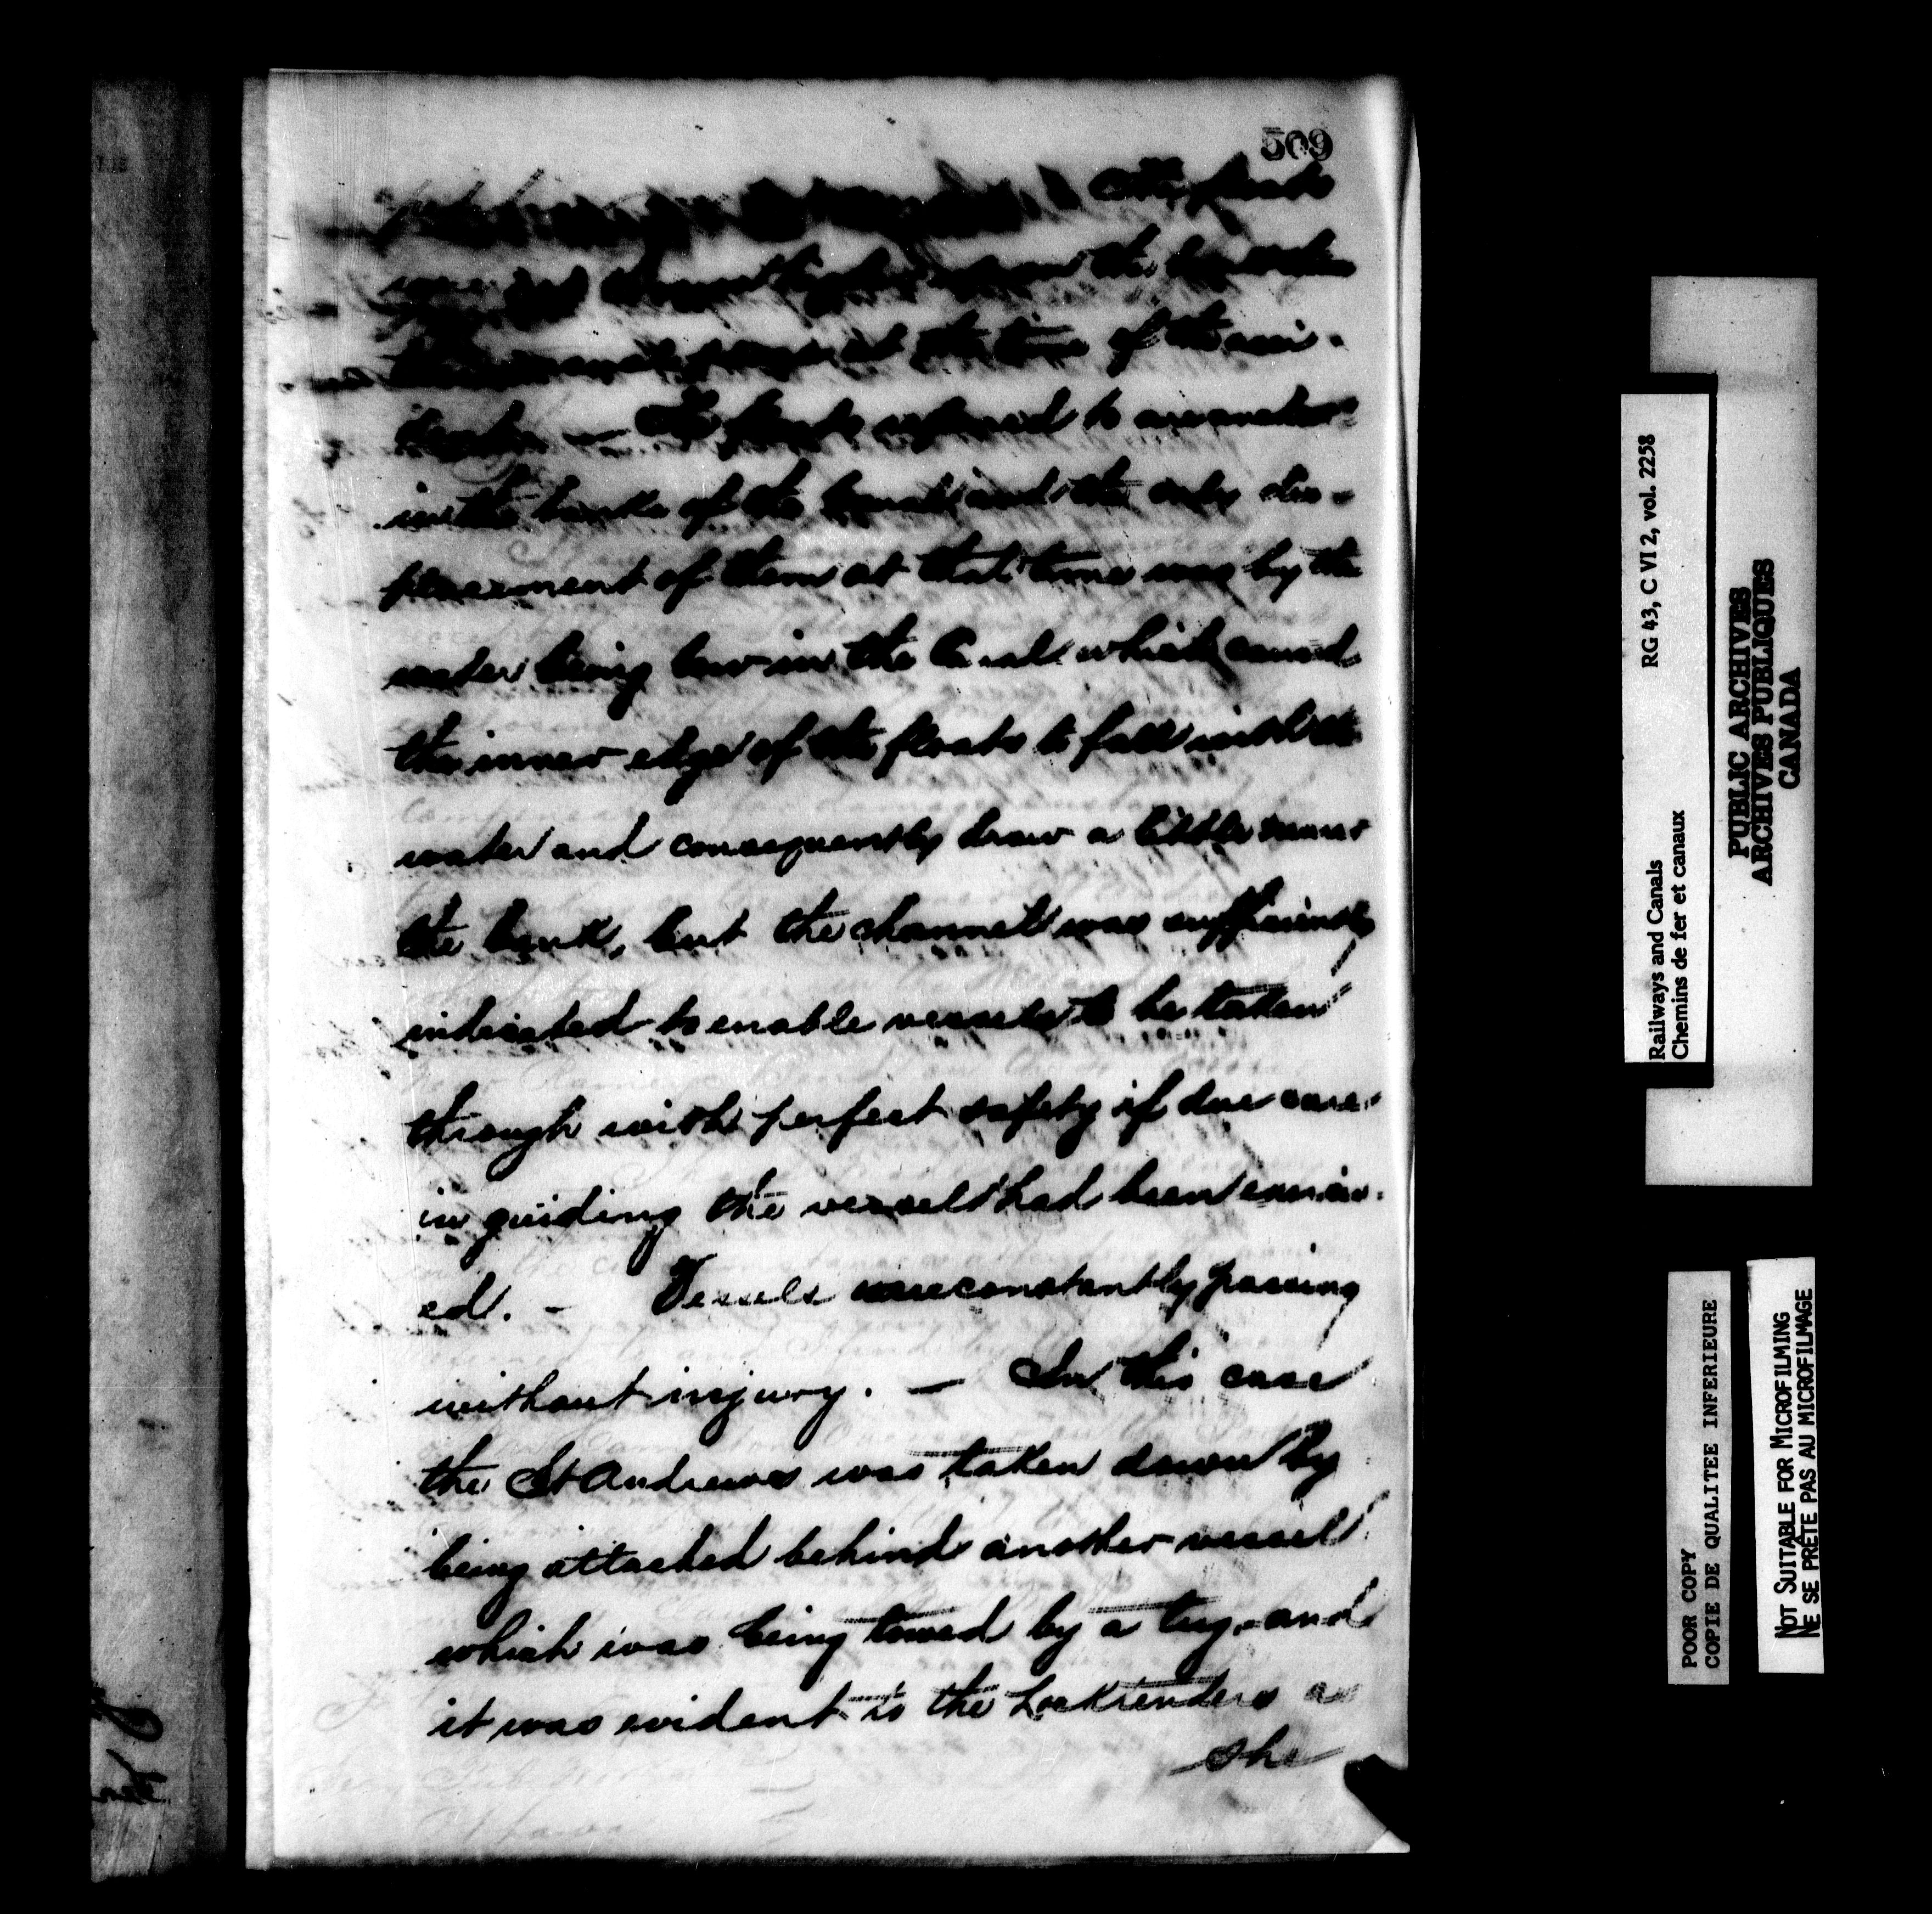 509
the floats
the
at the time of the acci-
dent. — The floats referred to are anchored
in the banks of the Canal and the only dis-
placement of them at that time was by the
water being low in the Canal which caused
the inner edge of the floats to fall with the
water and consequently draw a little nearer
the bank, but the channel was sufficiently
indicated to enable vessels to be taken
through with perfect safety if due care
in guiding the vessel had been exercis-
ed. — Vessels were constantly passing
without injury. — In this case
the St Andrews was taken down by
being attached behind another vessel
which was being towed by a tug, and
it was evident to the Locktenders as
she
Railways and Canals
Chemins de fer et canaux
RG 43, C VI 2, vol. 2258
PUBLIC ARCHIVES
ARCHIVES PUBLIQUES
CANADA
POOR COPY
COPIE DE QUALITEE INFERIEURE
NOT SUITABLE FOR MICROFILMING
NE SE PRÊTE PAS AU MICROFILMAGE